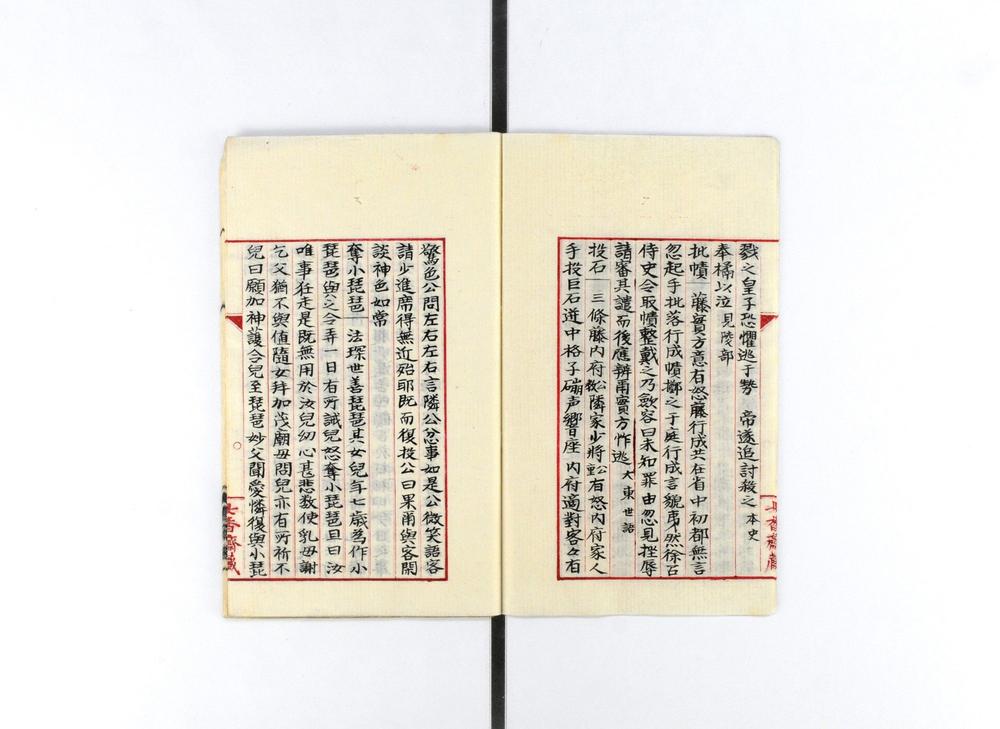 戮之皇子恐懼逃于勢　帝遂追討殺之 本史
奉橘以泣 見陵部
批幘　藤實方意有怒藤行成共在省中初都無言
忽起手批落行成幘擲之于庭行成言貌夷然徐召
侍史令取幘整戴之乃斂容曰未知罪由忽見挫辱
請審其譴而後應辨甫實方怍逃 大東世語
投石　三條藤內府 隣家少將 有怒內府家人
手投巨石迸中格子磞声響座內府適對客々有
驚色公問左右左右言隣公忿事如是公微笑語客
請少進席得無近殆耶既而復投公曰果爾與客閑
談神色如常
奪小琵琶　法琛世善琵琶其女兒年七歲為作小
琵琶與之令弄一日有所誡兒怒奪小琵琶且曰汝
唯事狂走是既無用於汝兒幼心甚悲數使乳母謝
乞父猶不與値隨女拜加茂廟母問兒亦有所祈不
兒曰願加神護令兒至琵琶妙父聞愛憐復與小琵
七香齋藏
七香齋藏